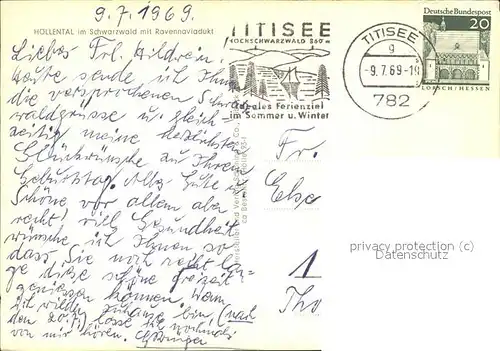 9.7.1969.
HÖLLENTAL im Schwarzwald mit Ravennaviadukt
TITISEE
HOCHSCHWARZWALD 860 m
Ideales Ferienziel
im Sommer u. Winter
TITISEE
g
-9.7.69-19
782
Deutsche Bundespost
20
LORSCH/HESSEN
Liebes Frl. Hildrein,
heute sende ich Ihnen
die versprochenen Schwarz-
waldgrüsse u. gleich-
zeitig meine herzlichsten
Glückwünsche zu Ihrem
Geburtstag. Alles Gute u.
Schöne vor allem aber
recht viel Gesundheit
wünsche ich Ihnen so
dass Sie noch recht lan-
ge diese schöne Freizeit
geniessen können. Wenn
ich wieder zuhause bin (nach
den 20.7.) lasse ich nochmals
von mir hören.
Fr.
Else
1
Tho
privacy protection (c)
Datenschutz